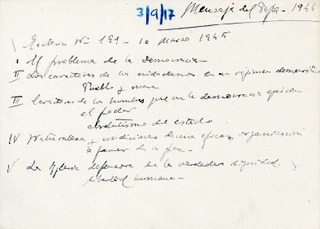 3/9/47
Mensaje del Papa - 1944
Ecclesia Nº 181 - 10 Marzo 1945
I El problema de la democracia
II Los caracteres de los ciudadanos en un régimen democrático
Pueblo y masa
III Caracteres de los hombres que en la democracia ejercen
el poder
absolutismo del estado
IV Naturaleza y condiciones de una eficaz organización
a favor de la paz
V La Iglesia defensora de la verdadera dignidad
libertad humana